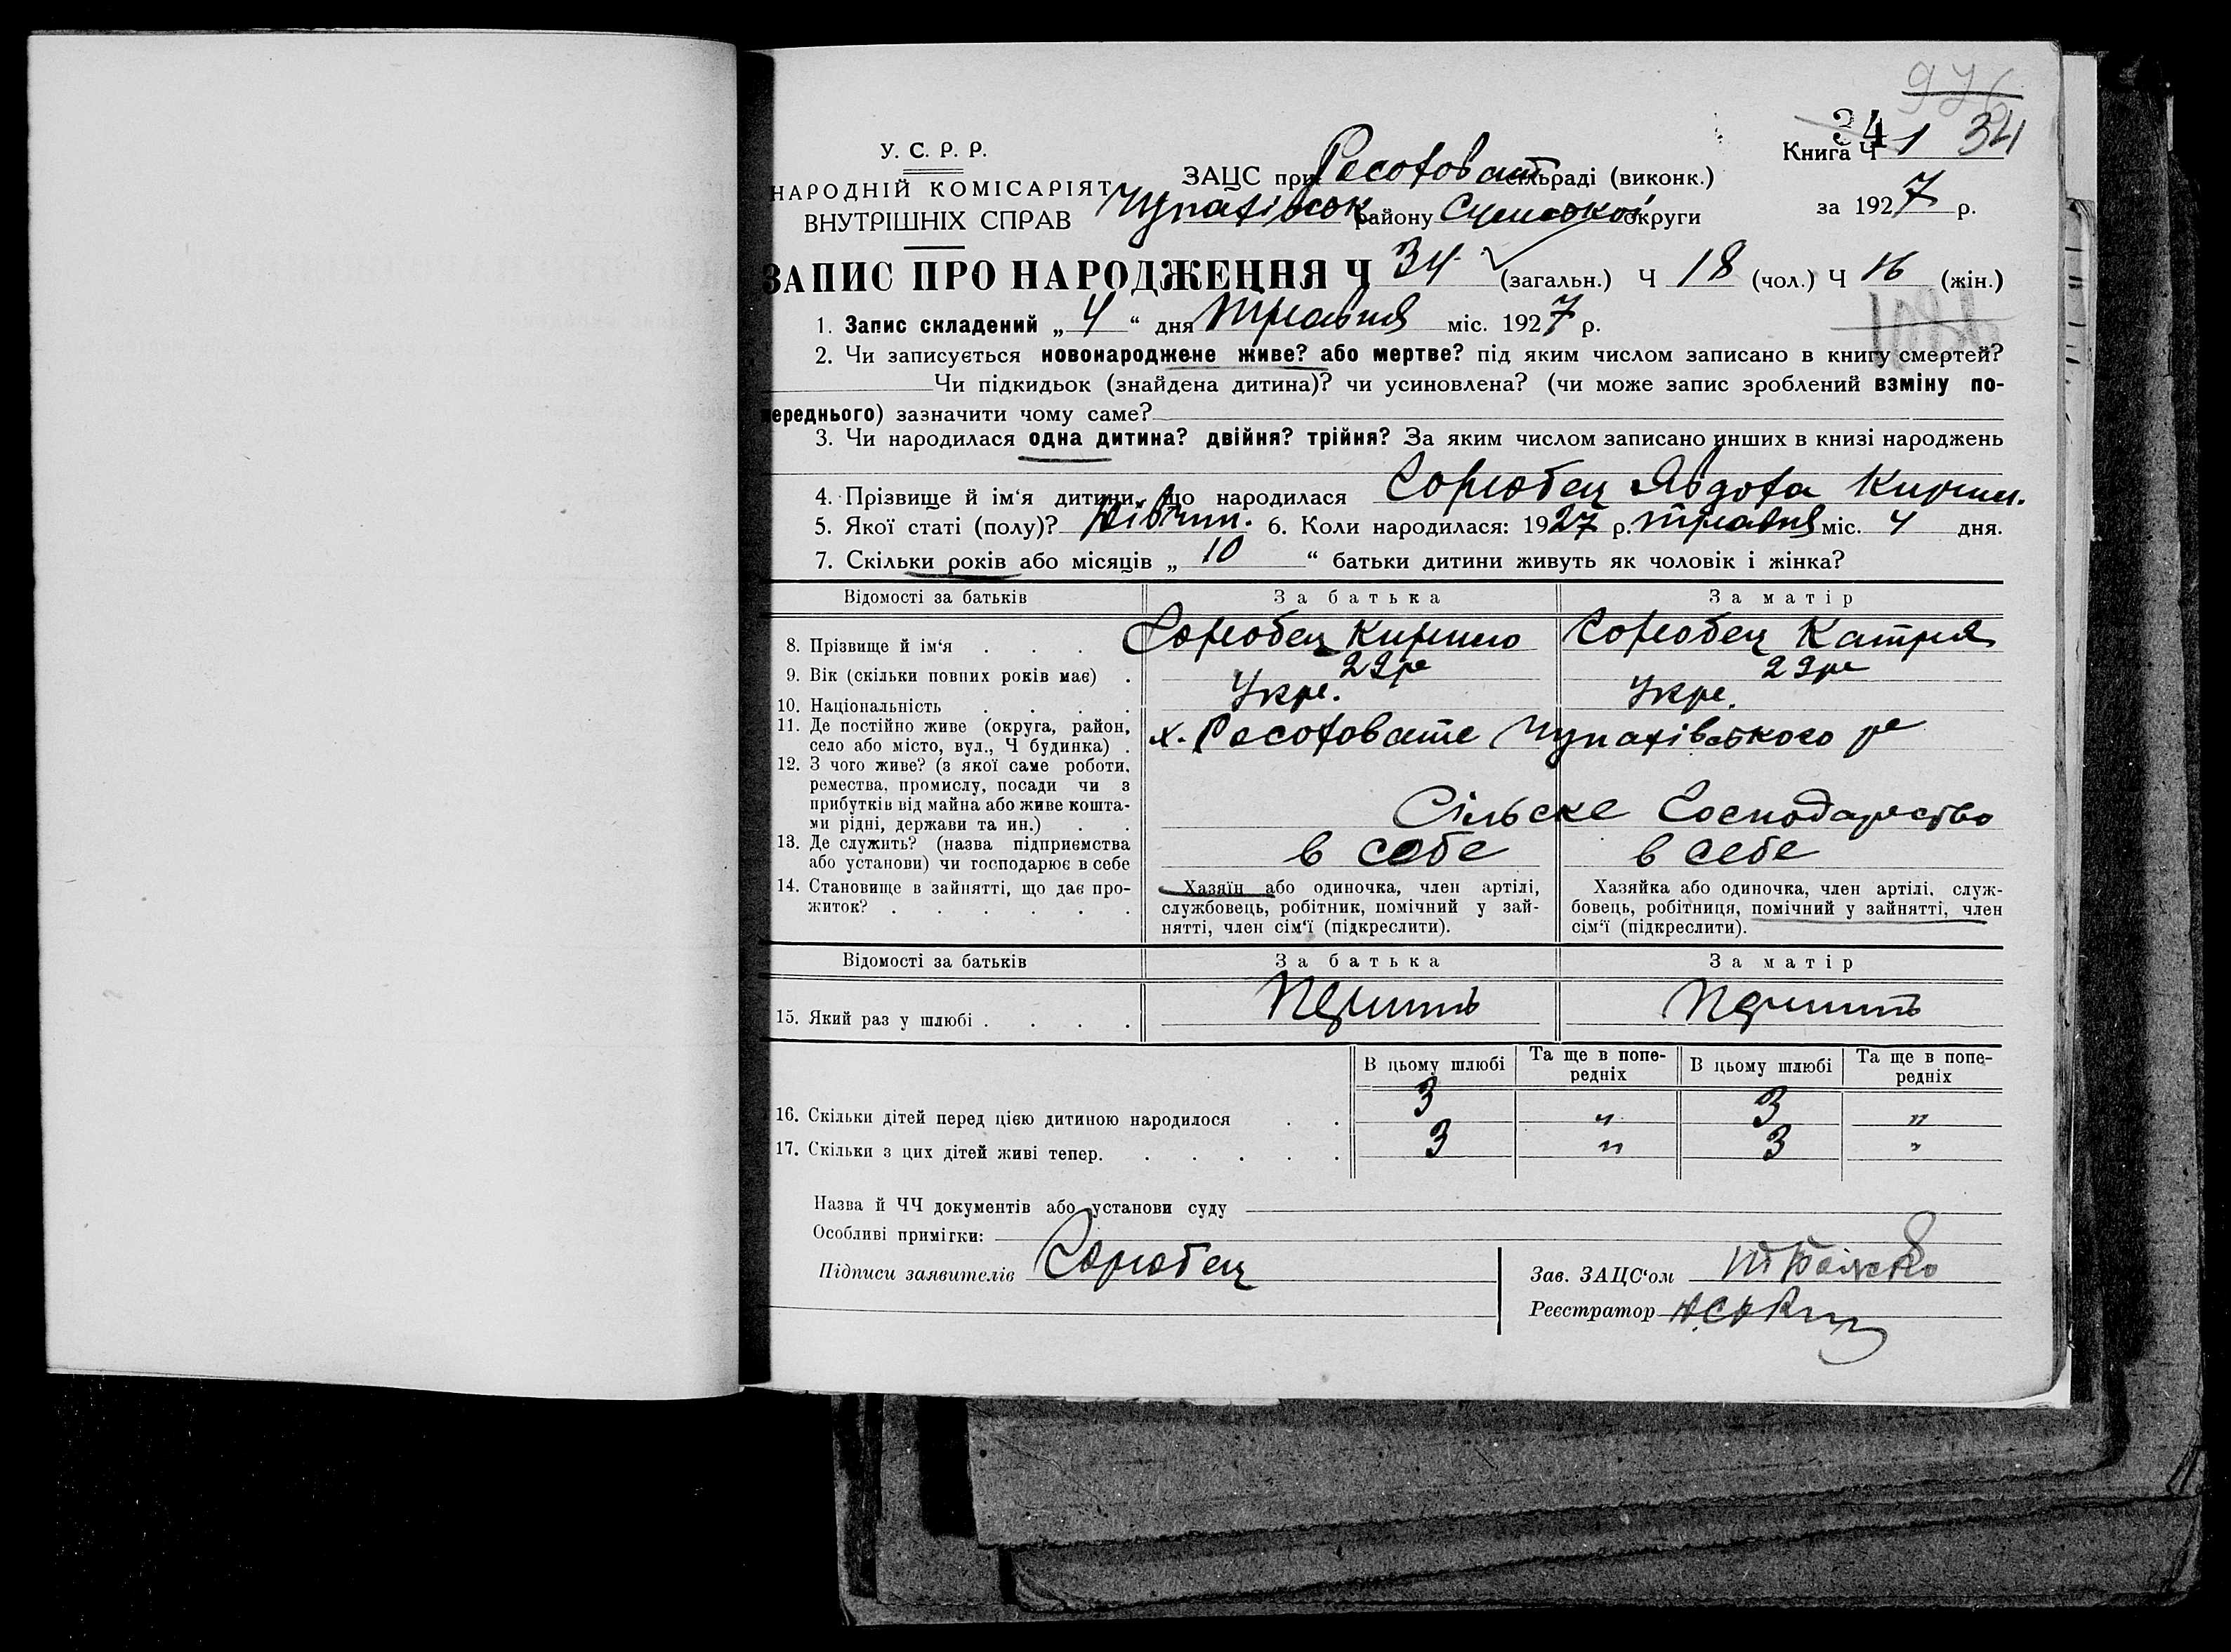 976
34
34
У. С. Р. Р.
Книга Ч 1
ЗАЦС при Росоховат сільраді (виконк.)
НАРОДНІЙ КОМІСАРІЯТ
ВНУТРІШНІХ СПРАВ
Чупахівськ району Сумської округи
за 1927 р.
ЗАПИС ПРО НАРОДЖЕННЯ Ч 34 (загальн.) Ч 18 (чол.) Ч 16 (жін.)
1. Запис складений „ 4 “ дня Травня міс. 1927 р.
2. Чи записується новонароджене живе? або мертве? під яким числом записано в книгу смертей?
Чи підкидьок (знайдена дитина)? чи усиновлена? (чи може запис зроблений взміну по-
переднього) зазначити чому саме?
3. Чи народилася одна дитина? двійня? трійня? За яким числом записано инших в книзі народжень
4. Прізвище й ім‘я дитини, що народилася Горобец Явдоха Кирил.
5. Якої статі (полу)? Дівчин. 6. Коли народилася: 1927 р. травня міс. 4 дня.
7. Скільки років або місяців „ 10 “ батьки дитини живуть як чоловік і жінка?
Відомості за батьків За батька За матір
8. Прізвище й ім‘я . . . Горобец Кирило Горобец Катря
9. Вік (скільки повних років має) . 29р 29р
10. Національність . . . . Укр. Укр.
11. Де постійно живе (округа, район,
село або місто, вул., Ч будинка) . х. Росоховате Чупахівського р
12. З чого живе? (з якої саме роботи,
ремества, промислу, посади чи з
прибутків від майна або живе кошта-
ми рідні, держави та ин.) . . Сільске Господарство
13. Де служить? (назва підприємства
або установи) чи господарює в себе в собе в себе
14. Становище в зайнятті, що дає про-
житок? . . . . . .
Хазяїн або одиночка, член артілі,
службовець, робітник, помічний у зай-
нятті, член сім‘ї (підкреслити).
Хазяйка або одиночка, член артілі, служ-
бовець, робітниця, помічний у зайнятті, член
сім‘ї (підкреслити).
Відомості за батьків За батька За матір
15. Який раз у шлюбі . . . . Перший Перший
В цьому шлюбі Та ще в попе-
редніх В цьому шлюбі Та ще в попе-
редніх
16. Скільки дітей перед цією дитиною народилося . . 3 „ 3 „
17. Скільки з цих дітей живі тепер. . . . . . 3 „ 3 „
Назва й ЧЧ документів або установи суду
Особливі примітки:
Підписи заявителів Горобец
Зав. ЗАЦС‘ом
Реєстратор